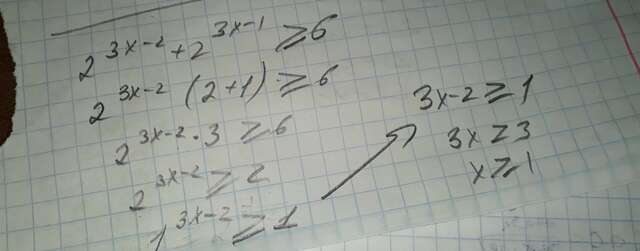 2^{3x-2} + 2^{3x-1} ≥ 6
2^{3x-2} (2+1) ≥ 6
2^{3x-2} · 3 ≥ 6
2^{3x-2} ≥ 2
1^{3x-2} ≥ 1
3x-2 ≥ 1
3x ≥ 3
x ≥ 1